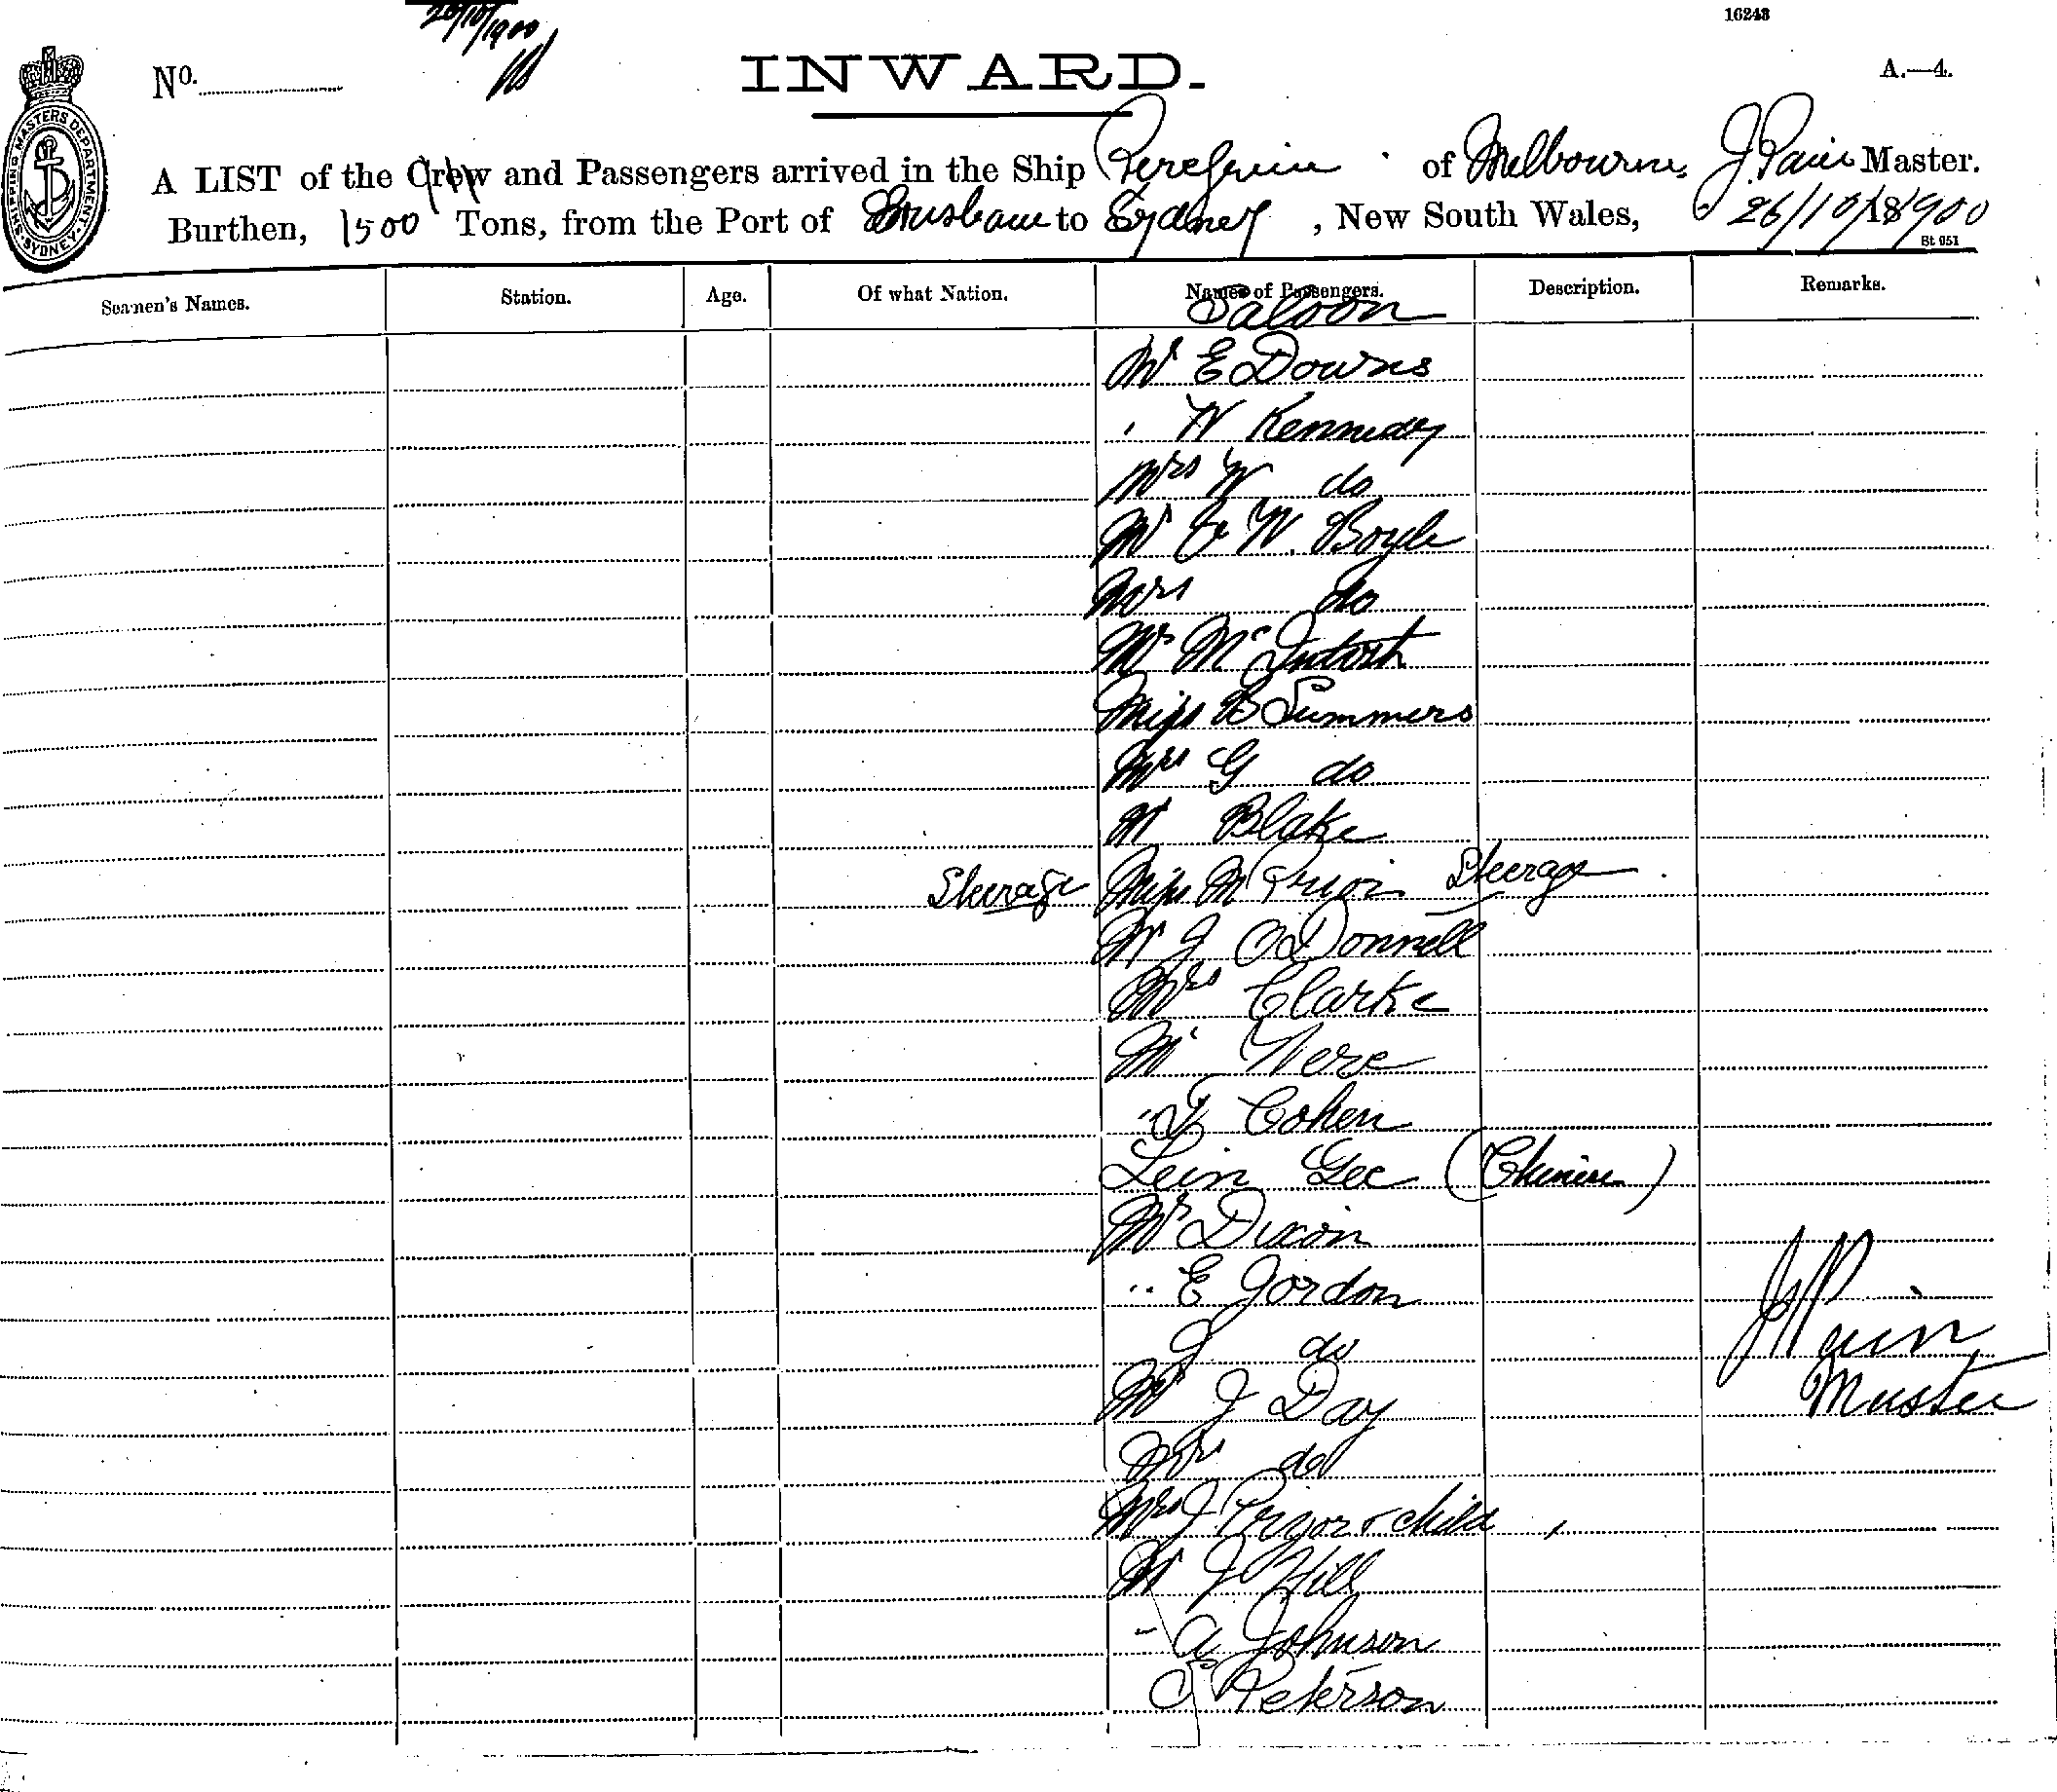 26/10/1900
16243
No.
INWARD.
A.—4.
SHIPPING MASTERS DEPARTMENT. SYDNEY.
A LIST of the Crew and Passengers arrived in the Ship Peregrine of Melbourne, J. Pain Master.
Burthen, 1500 Tons, from the Port of Brisbane to Sydney, New South Wales, 26/10/18900
Bt 051
Seamen's Names. Station. Age. Of what Nation. Names of Passengers. Description. Remarks.
Saloon
Mr E Downs
" W Kennedy
Mrs W do
Mr W. Boyle
Mrs do
Mr McIntosh
Miss B Summers
Mrs G do
Mr Blake
Steerage Miss M Prior Steerage
Mr J O'Donnell
Mrs Clarke
Mr Vere
" Cohen
Lein Gee (Chinese)
Mr Dixon
" E Gordon
J do
Mr J Day
Mrs do
Mrs J Pryor + child
Mr J Hill
" A Johnson
C Peterson
J Pain
Master